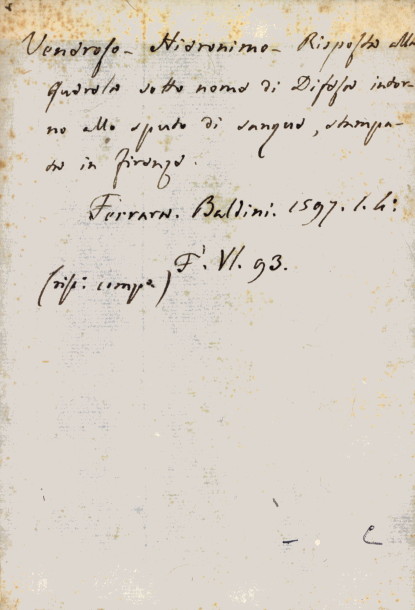 Vendroso - Hieronimo - Risposta alla
Querela sotto nome di Difesa intor-
no allo sputo di sangue, stampa-
ta in firenze.
Ferrara. Baldini. 1597. I. 4:
F. VI. 93.
(risp: comp.)
C